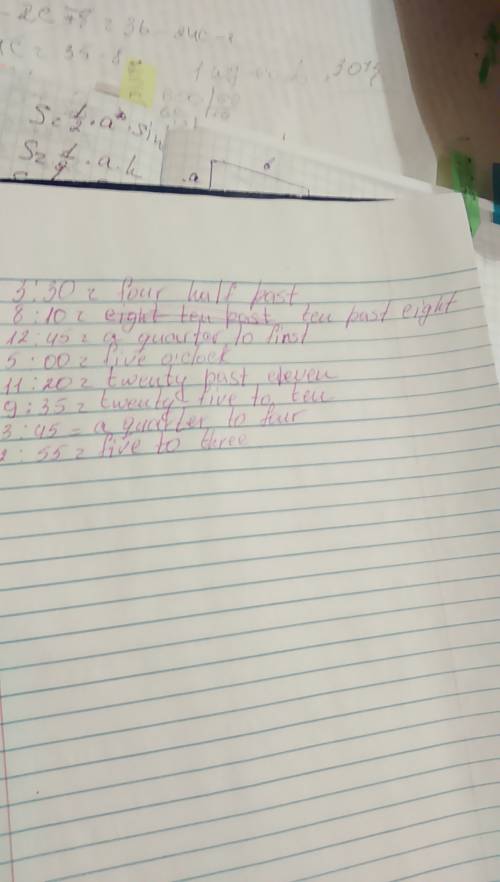 S = 1/2 · a² · sin
S = 1/2 · a · h
a
3:30 = four half past
8:10 = eight ten past ten past eight
12:45 = a quarter to first
5:00 = five o'clock
11:20 = twenty past eleven
9:35 = twenty five to ten
3:45 = a quarter to four
2:55 = five to three